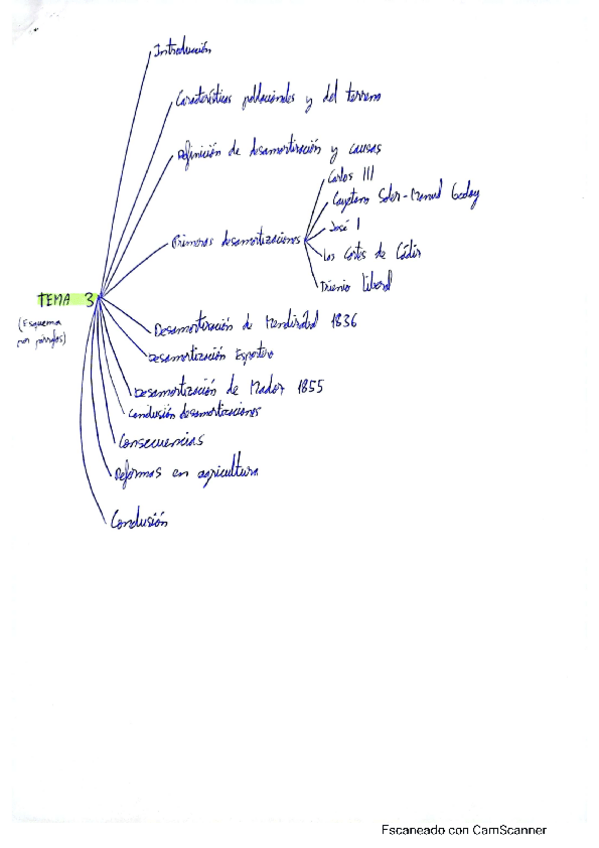 Introducción
Características poblacionales y del terreno
Definición de desamortización y causas
Primeras desamortizaciones
Carlos III
Cayetano Soler-Manuel Godoy
José I
Las Cortes de Cádiz
Trienio liberal
TEMA 3
(Esquema
por párrafos)
Desamortización de Mendizábal 1836
Desamortización Espartero
Desamortización de Madoz 1855
Conclusión desamortizaciones
Consecuencias
Reformas en agricultura
Conclusión
Escaneado con CamScanner